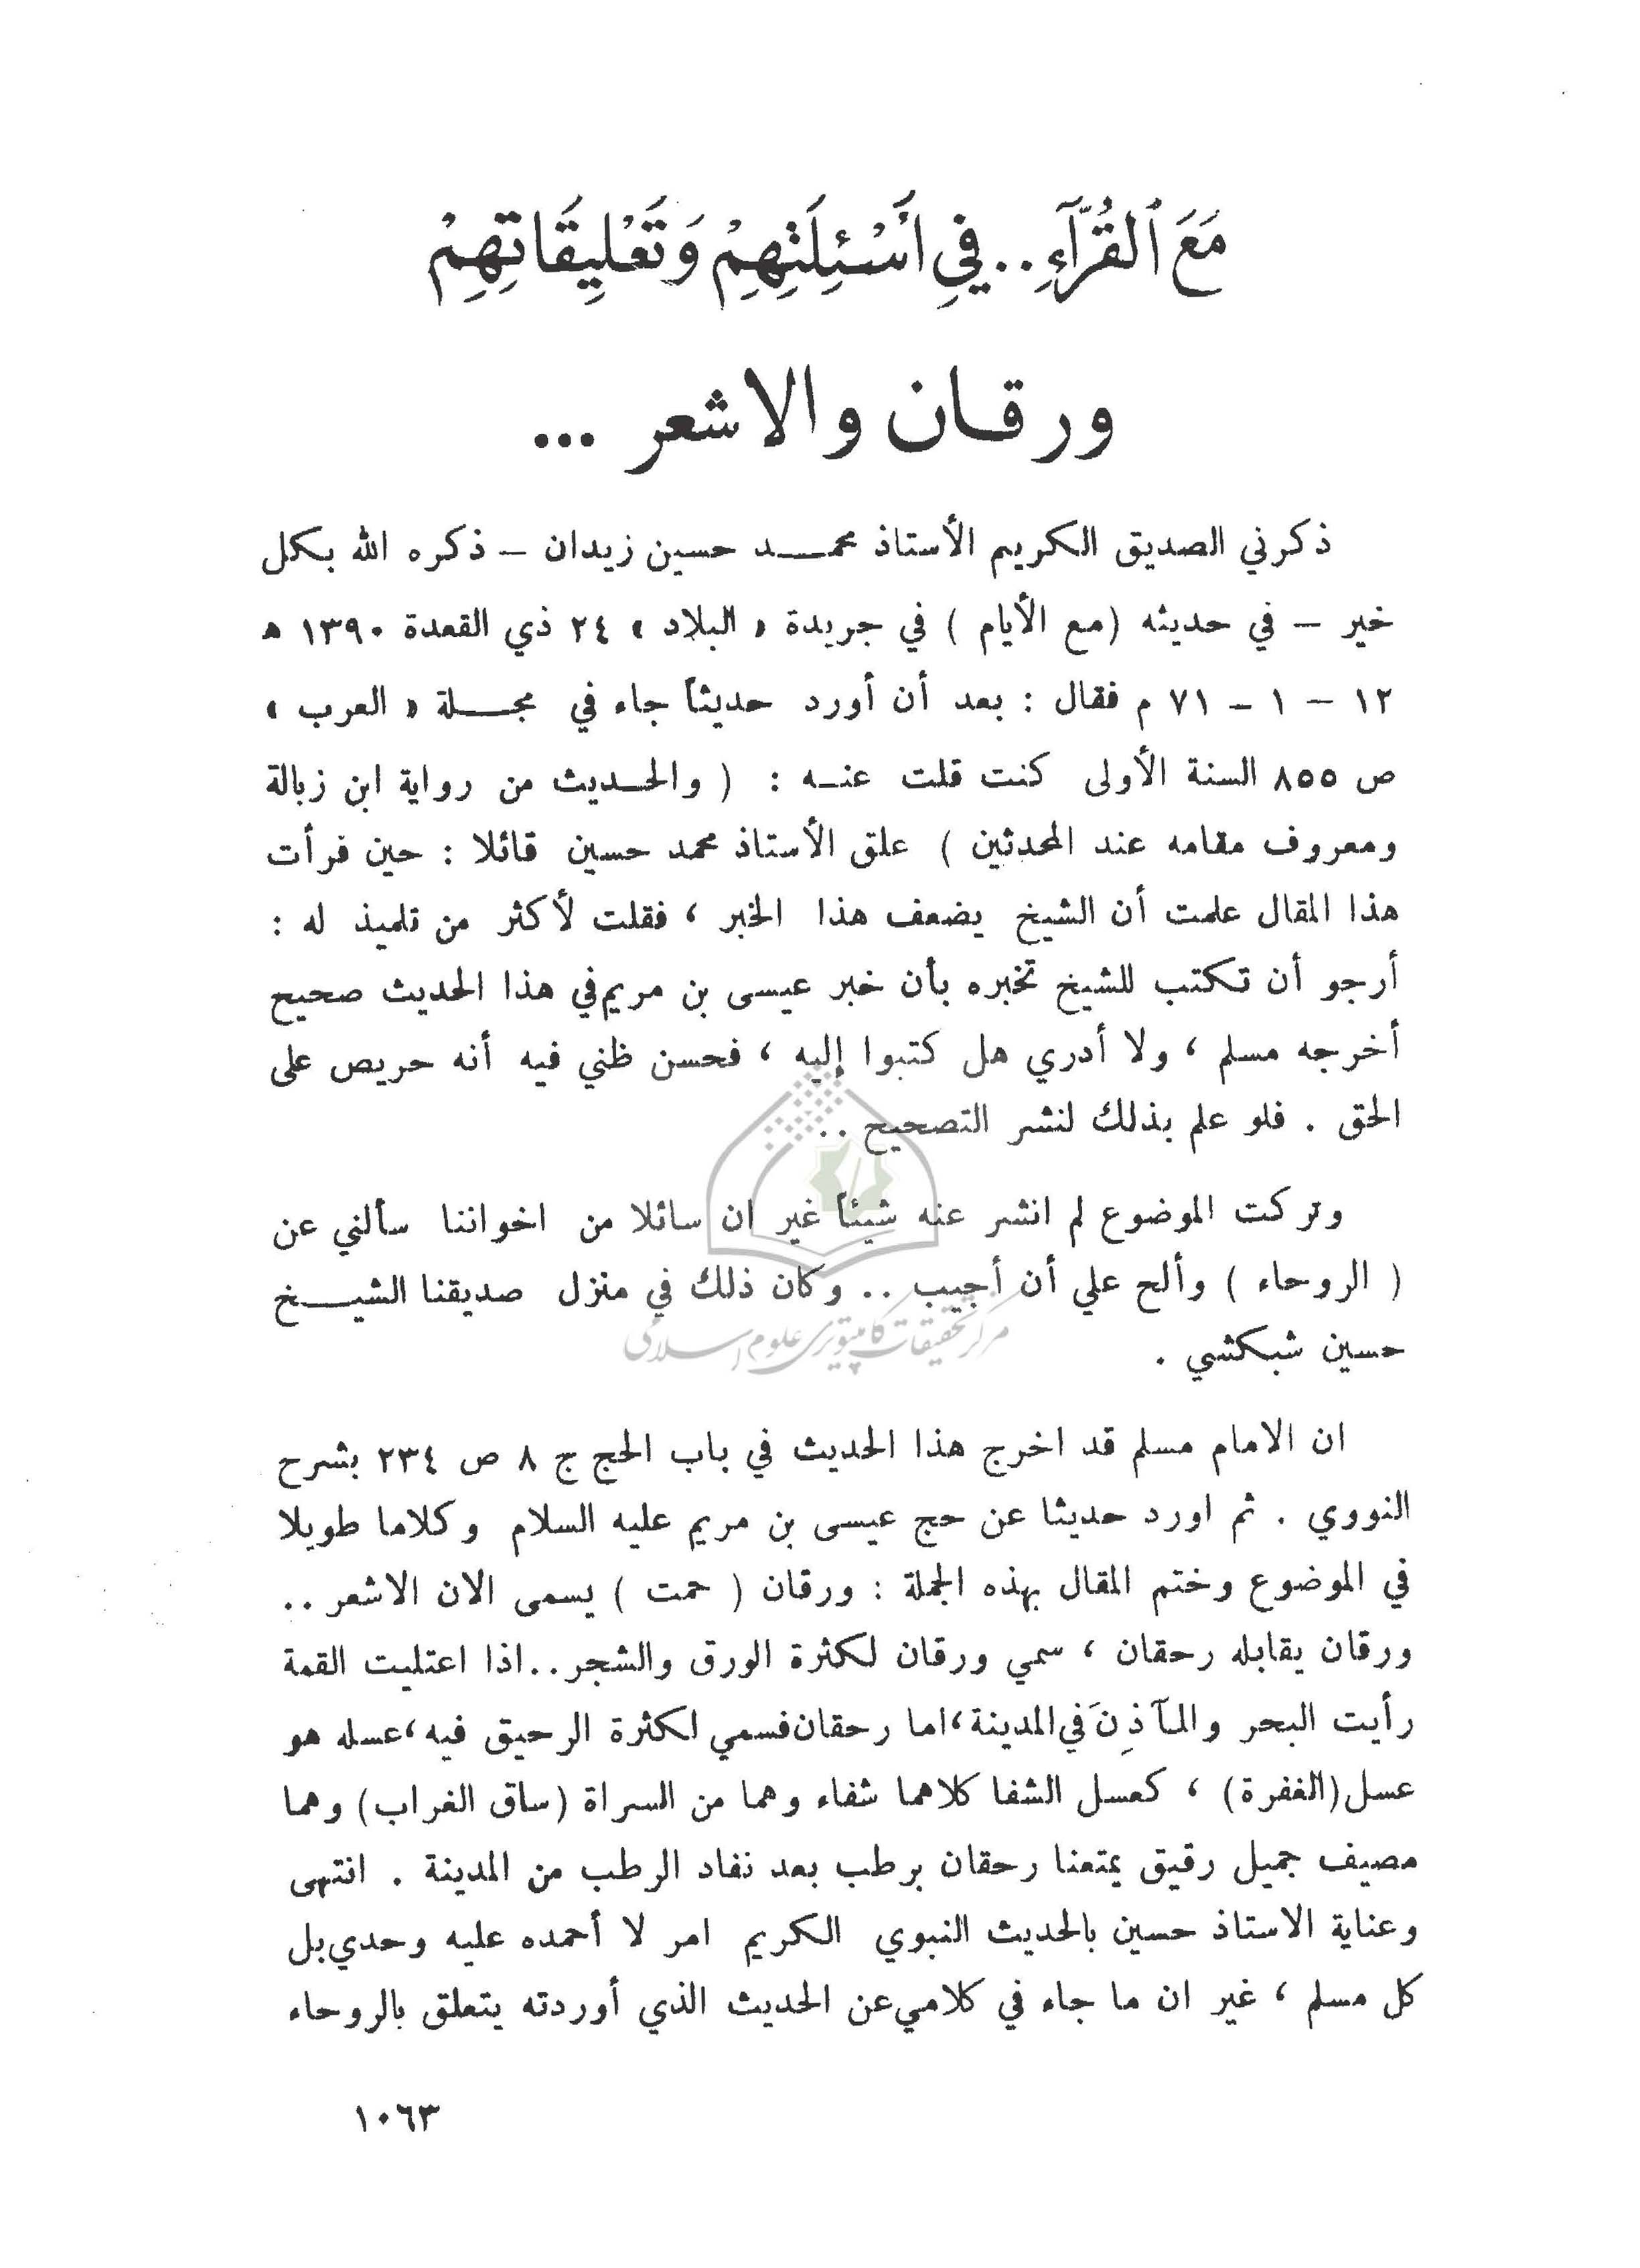 مَعَ ٱلقُرَّآءِ..فيِ أَسْئِلَتِهِمْ وَتَعْلِيقَاتِهِمْ
ورقان والاشعر ...
ذكرني الصديق الكريم الأستاذ محمد حسين زيدان – ذكره الله بكل
خير – في حديثه (مع الأيام ) في جريدة « البلاد » ٢٤ ذي القعدة ١٣٩٠ ه
١٢ – ١ – ٧١ م فقال : بعد أن أورد حديثاً جاء في مجلة « العرب »
ص ٨٥٥ السنة الأولى كنت قلت عنه : ( والحديث من رواية ابن زبالة
ومعروف مقامه عند المحدثين ) علق الأستاذ محمد حسين قائلا : حين قرأت
هذا المقال علمت أن الشيخ يضعف هذا الخبر ، فقلت لأكثر من تلميذ له :
أرجو أن تكتب للشيخ تخبره بأن خبر عيسى بن مريم في هذا الحديث صحيح
أخرجه مسلم ، ولا أدري هل كتبوا إليه ، فحسن ظني فيه أنه حريص على
الحق . فلو علم بذلك لنشر التصحيح ..
وتركت الموضوع لم انشر عنه شيئاً غير ان سائلا من اخواننا سألني عن
( الروحاء ) وألح علي أن أجيب .. وكان ذلك في منزل صديقنا الشيخ
حسين شبكشي .
مركز تحقیقات کامپیوتری علوم اسلامی
ان الامام مسلم قد اخرج هذا الحديث في باب الحج ج ٨ ص ٢٣٤ بشرح
النووي . ثم اورد حديثا عن حج عيسى بن مريم عليه السلام وكلاما طويلا
في الموضوع وختم المقال بهذه الجملة : ورقان ( حمت ) يسمى الان الاشعر ..
ورقان يقابله رحقان ، سمي ورقان لكثرة الورق والشجر..اذا اعتليت القمة
رأيت البحر والمآذِنَ في المدينة، اما رحقان فسمي لكثرة الرحيق فيه، عسله هو
عسل (الغفرة) ، كعسل الشفا كلاهما شفاء وهما من السراة (ساق الغراب) وهما
مصيف جميل رقيق يمتعنا رحقان برطب بعد نفاد الرطب من المدينة . انتهى
وعناية الاستاذ حسين بالحديث النبوي الكريم امر لا أحمده عليه وحدي بل
كل مسلم ، غير ان ما جاء في كلامي عن الحديث الذي أوردته يتعلق بالروحاء
١٠٦٣